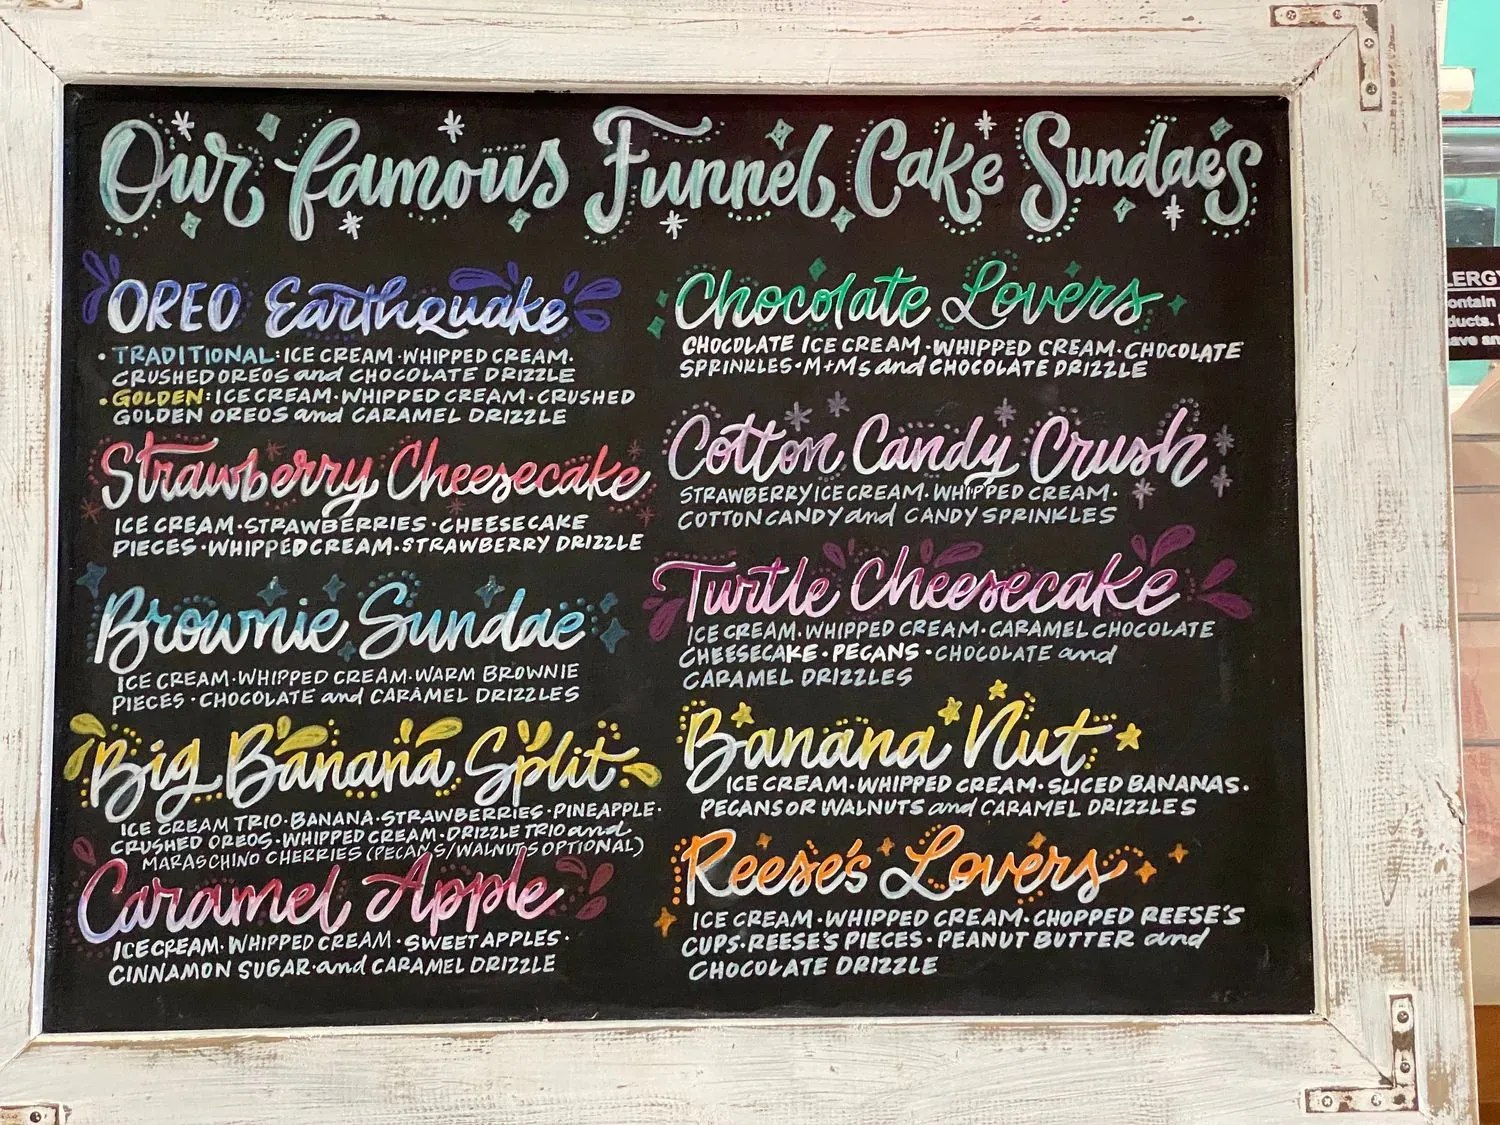 Our famous Funnel Cake Sundaes
OREO Earthquake
• TRADITIONAL: ICE CREAM · WHIPPED CREAM ·
CRUSHED OREOS and CHOCOLATE DRIZZLE
• GOLDEN: ICE CREAM · WHIPPED CREAM · CRUSHED
GOLDEN OREOS and CARAMEL DRIZZLE
Strawberry Cheesecake
ICE CREAM · STRAWBERRIES · CHEESECAKE
PIECES · WHIPPED CREAM · STRAWBERRY DRIZZLE
Brownie Sundae
ICE CREAM · WHIPPED CREAM · WARM BROWNIE
PIECES · CHOCOLATE and CARAMEL DRIZZLES
Big Banana Split
ICE CREAM TRIO · BANANA · STRAWBERRIES · PINEAPPLE ·
CRUSHED OREOS · WHIPPED CREAM · DRIZZLE TRIO and
MARASCHINO CHERRIES (PECANS/WALNUTS OPTIONAL)
Caramel Apple
ICE CREAM · WHIPPED CREAM · SWEET APPLES ·
CINNAMON SUGAR · and CARAMEL DRIZZLE
Chocolate Lovers
CHOCOLATE ICE CREAM · WHIPPED CREAM · CHOCOLATE
SPRINKLES · M+Ms and CHOCOLATE DRIZZLE
Cotton Candy Crush
STRAWBERRY ICE CREAM · WHIPPED CREAM ·
COTTON CANDY and CANDY SPRINKLES
Turtle Cheesecake
ICE CREAM · WHIPPED CREAM · CARAMEL CHOCOLATE
CHEESECAKE · PECANS · CHOCOLATE and
CARAMEL DRIZZLES
Banana Nut
ICE CREAM · WHIPPED CREAM · SLICED BANANAS ·
PECANS OR WALNUTS and CARAMEL DRIZZLES
Reese's Lovers
ICE CREAM · WHIPPED CREAM · CHOPPED REESE'S
CUPS · REESE'S PIECES · PEANUT BUTTER and
CHOCOLATE DRIZZLE